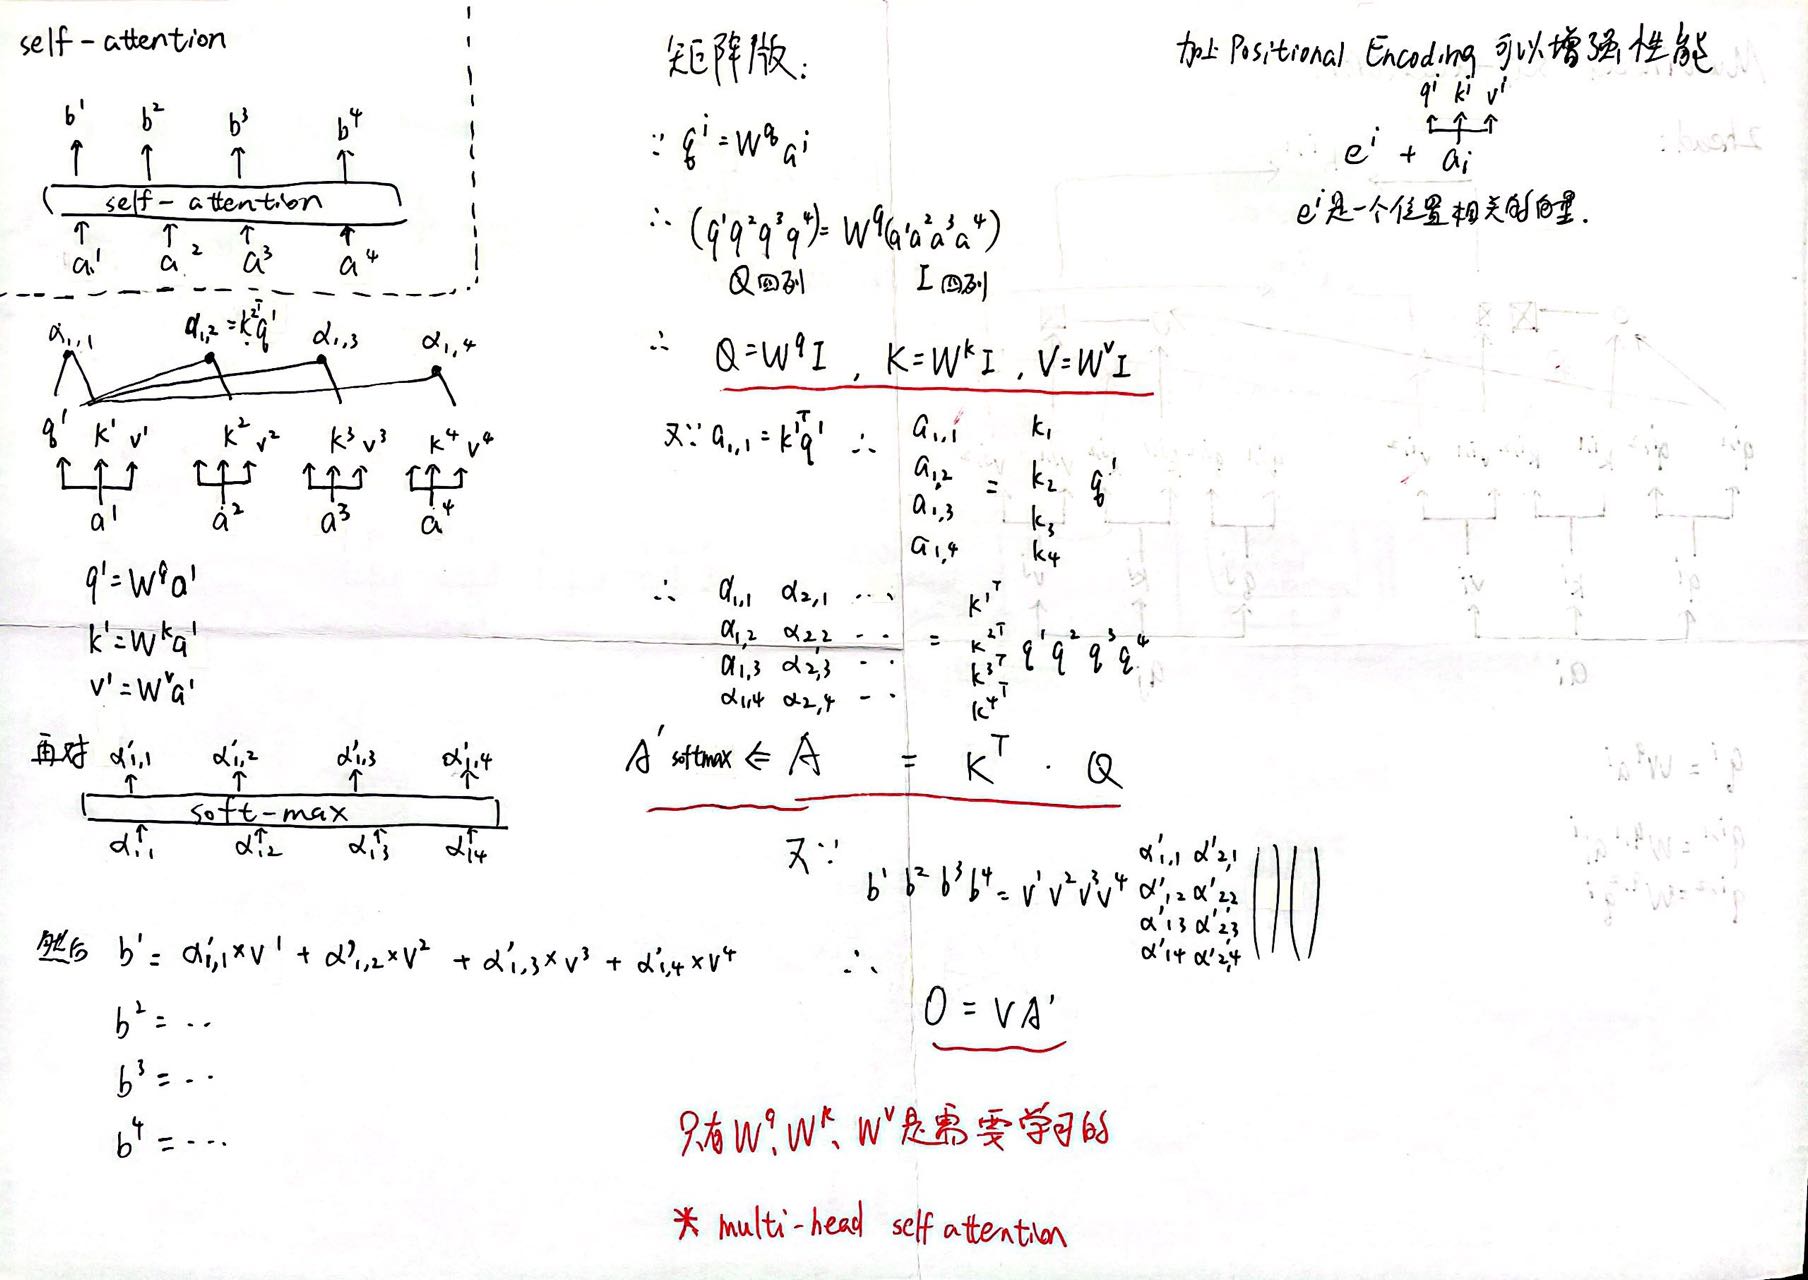 self-attention
b¹ b² b³ b⁴
self-attention
a¹ a² a³ a⁴
α₁,₁ α₁,₂ = k²ᵀq¹ α₁,₃ α₁,₄
q¹ k¹ v¹ k² v² k³ v³ k⁴ v⁴
a¹ a² a³ a⁴
q¹ = W^q a¹
k¹ = W^k a¹
v¹ = W^v a¹
再对 α'₁,₁ α'₁,₂ α'₁,₃ α'₁,₄
soft-max
α₁,₁ α₁,₂ α₁,₃ α₁,₄
然后 b¹ = α'₁,₁×v¹ + α'₁,₂×v² + α'₁,₃×v³ + α'₁,₄×v⁴
b² = ...
b³ = ...
b⁴ = ...
矩阵版:
∵ qⁱ = W^q aⁱ
∴ (q¹q²q³q⁴) = W^q(a¹a²a³a⁴)
Q四列 I四列
∴ Q = W^q I , K = W^k I , V = W^v I
又∵ a₁,₁ = k¹ᵀq¹ ∴
a₁,₁ k₁
a₁,₂ = k₂ q¹
a₁,₃ k₃
a₁,₄ k₄
∴ α₁,₁ α₂,₁ ... k¹ᵀ
α₁,₂ α₂,₂ ... = k²ᵀ q¹ q² q³ q⁴
α₁,₃ α₂,₃ ... k³ᵀ
α₁,₄ α₂,₄ ... k⁴ᵀ
A' softmax ⇐ A = Kᵀ · Q
又∵
α'₁,₁ α'₂,₁
b¹ b² b³ b⁴ = v¹ v² v³ v⁴ α'₁,₂ α'₂,₂
α'₁,₃ α'₂,₃
α'₁,₄ α'₂,₄
∴
O = VA'
只有W^q、W^k、W^v是需要学习的
* multi-head self attention
加上 Positional Encoding 可以增强性能
qⁱ kⁱ vⁱ
eⁱ + aᵢ
eⁱ是一个位置相关的向量.